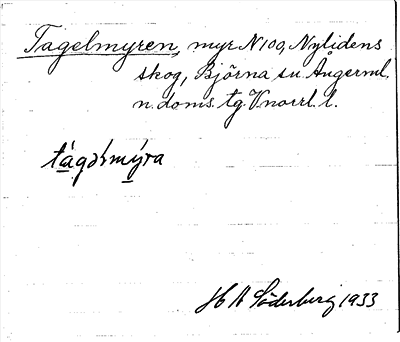 Tagelmyren, myr N 100, Nylidens
skog, Björna sn. Ångerml.
n. doms. tg. Vnorrl. l.
tágəlmýra
H A Söderberg 1933